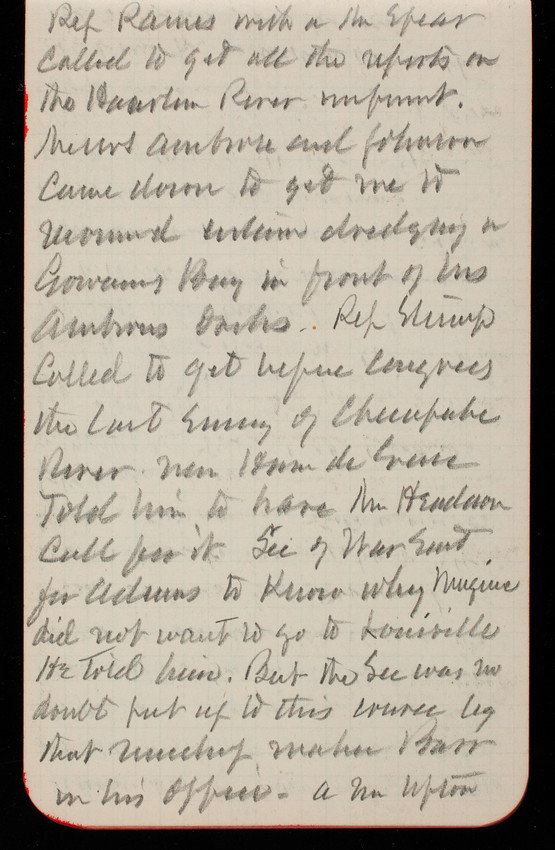 Rep Raines with a Mr Spear
Called to get all the reports on
the Haarlem River improvmt.
Messrs Ambrose and Johnson
Came down to get me to
recomend certain dredging in
Gowanus Bay in front of his
Ambrose Docks. Rep Stump
Called to get before Congress
the last Survey of Chesapeake
River near Havre de Grace
Told him to have Mr Headmon
Call for it Sec of War Sent
for Adams to Know why
did not want to go to Louisville
He Told him. But the Sec was no
doubt put up to this course by
that mischief maker Barr
in his Office - a Mr Upton